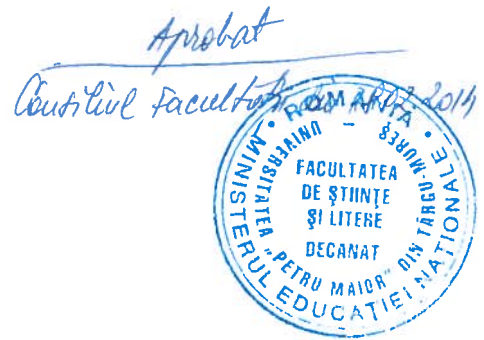 Aprobat
Consiliul Facultății din 2014
ROMÂNIA
MINISTERUL EDUCAȚIEI NAȚIONALE
UNIVERSITATEA "PETRU MAIOR" DIN TÂRGU-MUREȘ
FACULTATEA
DE ȘTIINȚE
ȘI LITERE
DECANAT